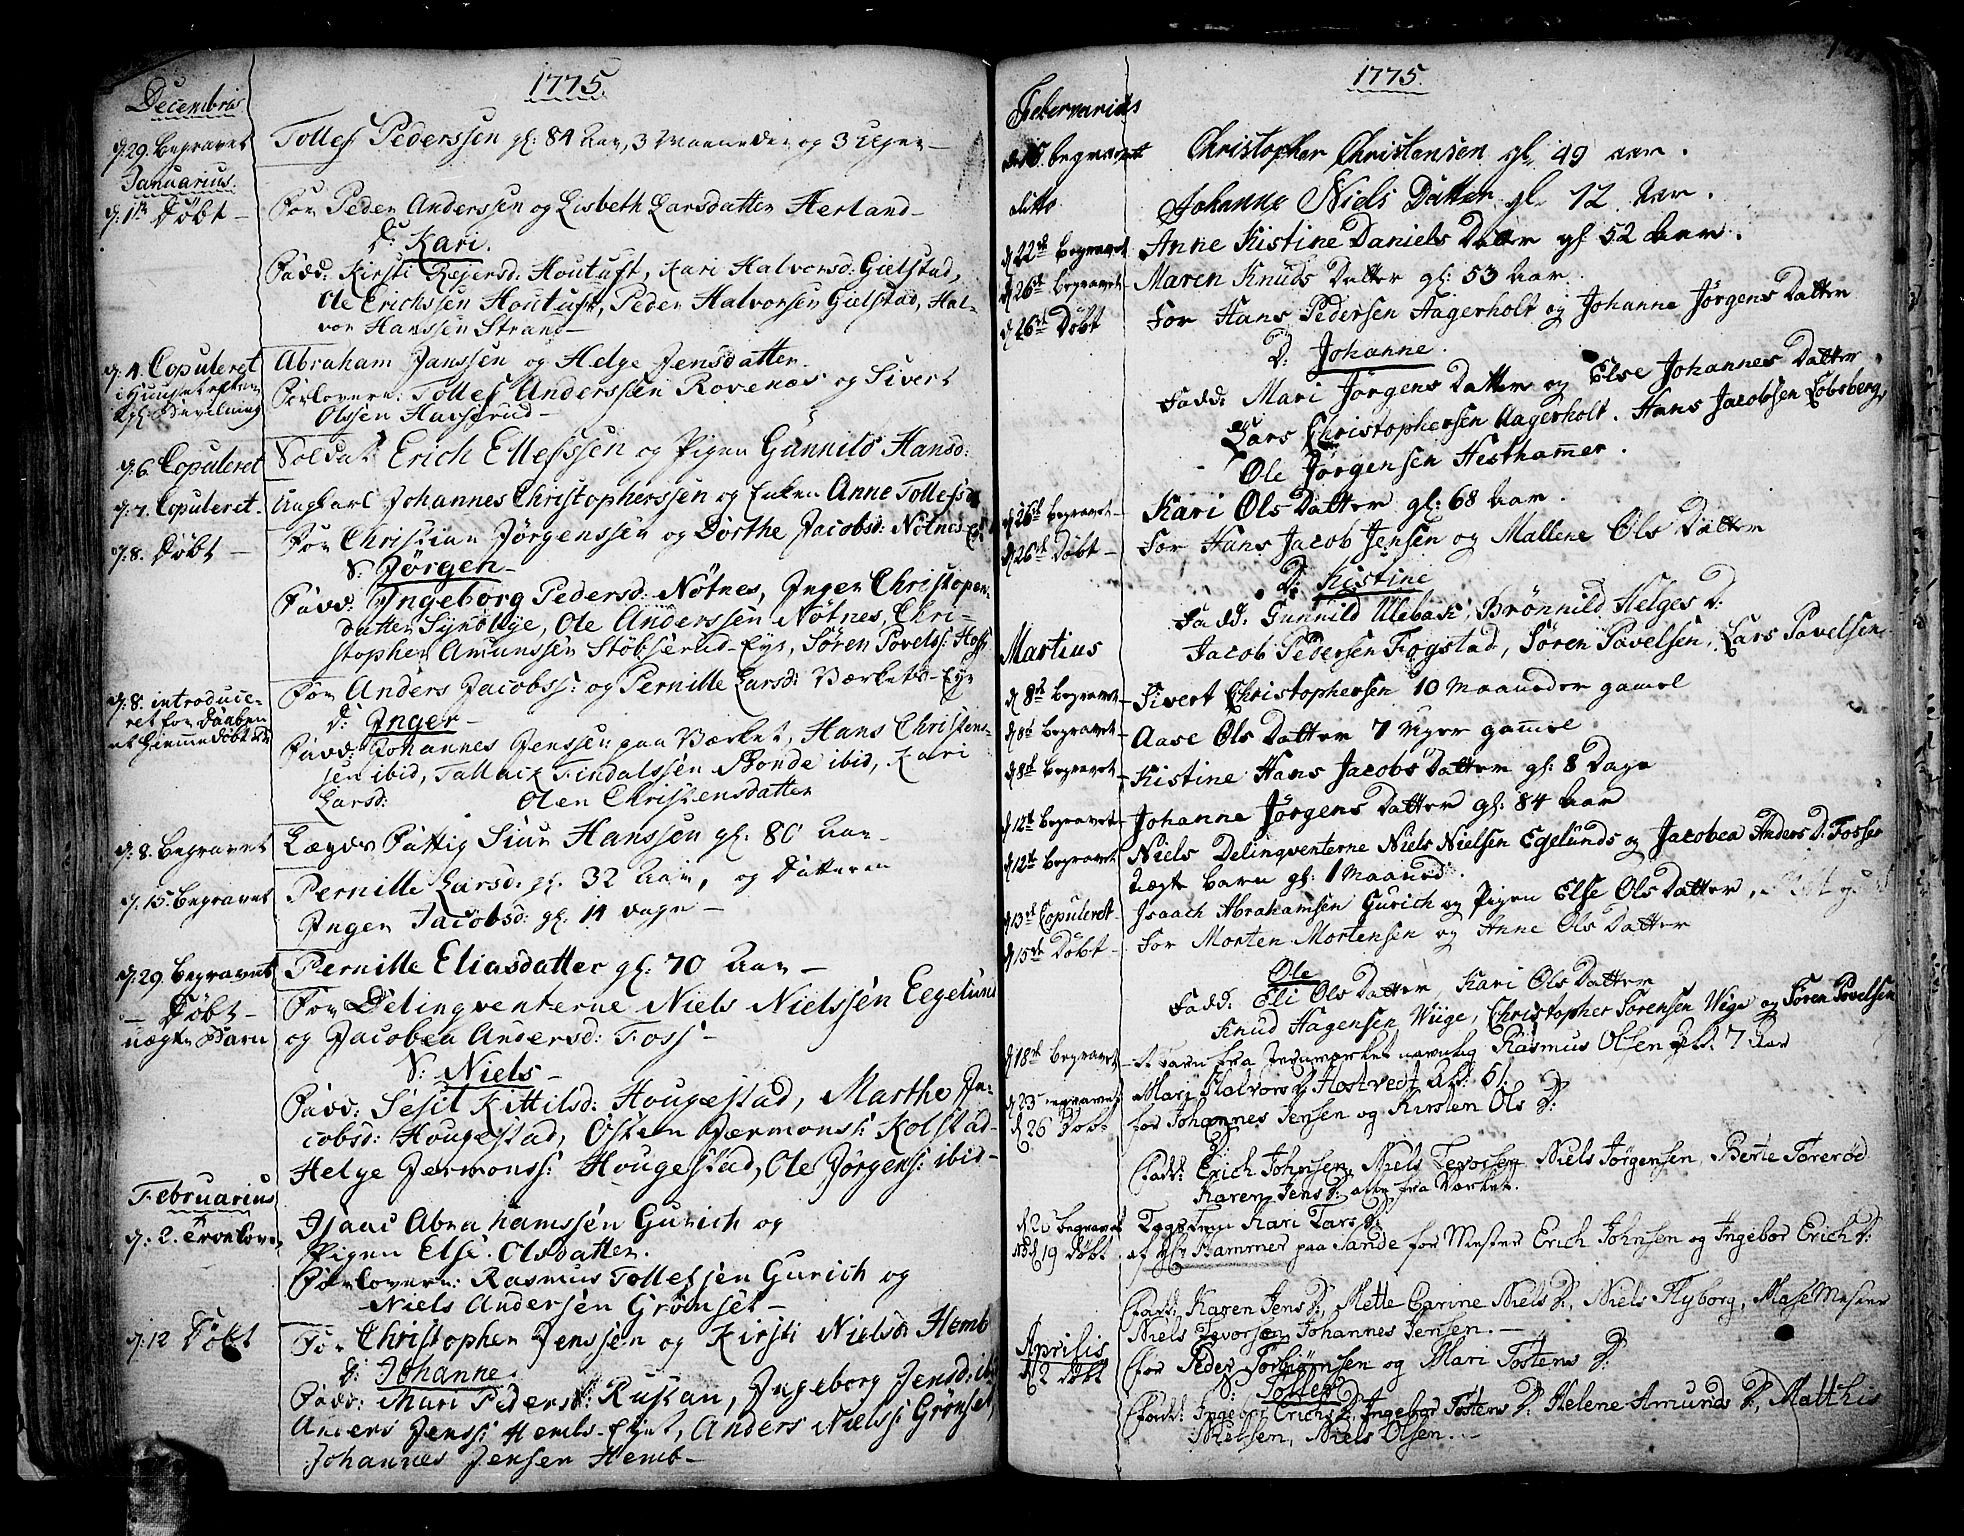 1775.
Decembris
d. 29. begravet Tollef Pederssen gl: 84 Aar, 3 Maaneder og 3 Uger
Januarius.
d. 1te Døbt For Peder Anderssen og Lisbeth Larsdatter Herland
D: Kari.
Fadd: Kirsti Rejersd: Houtuft, Kari Halvorsd: Gielstad,
Ole Erichssen Houtuft, Peder Halvorsen Gielstad, Hal-
vor Hanssen Strand
d. 4. Copuleret Abraham Janssen og Helge Jensdatter
i Huuset efter
kgl: Bevilning
Forlovere: Tollef Anderssen Rovenæs og Sivert
Olssen
d. 6 Copuleret Soldat Erich Ellefssen og Pigen Gunnild Hansd:
d. 7. Copuleret. Ungkarl Johannes Christopherssen og Enken Anne Tollefsd
d. 8. Døbt For Christian Jørgenssen og Dorthe Jacobsd: Nötnes
S: Jørgen
Fadd: Ingeborg Pedersd: Nötnes, Inger Christopher
datter, Ole Anderssen Nötnes, Chri-
stopher Amunssen Stöbserud-Eye, Sören Povelss:
d. 8. introduce-
ret for Daaben
at hiemmedøbt
For Anders Jacobss: og Pernille Larsd: Værkets-Eye
D: Inger
Fadd: Johannes Jenssen paa Værket, Hans Christens-
sen ibid, Tallack Findalssen Bonde ibid, Kari
Larsd: Olen Christensdatter
d. 8. begravet Lægds Fattig Siur Hanssen gl: 80 Aar
d. 15. begravet Pernille Larsd: gl: 32 Aar, og Datteren
Inger Jacobsd: gl: 14 dage
d. 29. begravet Pernille Eliasdatter gl: 70 Aar
Døbt
uægte Barn
For Delinqventerne Niels Nielssen Eegelund
og Jacobea Andersd: Foss
S: Niels
Fadd: Sesil Kittilsd: Hougestad, Marthe Ja-
cobsd: Hougestad, Östen Jermonss: Kolstad
Helge Jermonss: Hougestad, Ole Jørgenss: ibid
Februarius
d: 2. Isaac Abrahamssen Gurich og
Pigen Else Olsdatter.
Forlovere: Rasmus Tollefsen Gurich og
Niels Andersen Grönset
d: 12 Døbt For Christopher Jenssen og Kirsti Nielsd Hemb
D: Johanne.
Fadd: Mari Pedersd: Rustan, Ingeborg Jensd: ibid
Anders Jenss: Hembs-Eyet, Anders Nielss: Grönset,
Johannes Jensen Hemb
1775.
Febervarius
begravet Christopher Christensen gl. 49 aar.
ditto Johanne Niels Datter gl. 72 Aar.
d 22de begravet Anne Kistine Daniels Datter gl: 52 Aar.
d 26te begravet Maren Knuds Datter gl: 53 Aar.
d 26te Døbt for Hans Pedersen Aagerholt og Johanne Jörgens Datter
D: Johanne.
Fadd: Mari Jörgens Datter og Else Johannes Datter
Lars Christophersen Aagerholt. Hans Jacobsen Lobsberg,
Ole Jörgensen Hesthammer.
d 26te begravet Kari Ols Datter gl: 68 Aar.
d 26te Døbt for Hans Jacob Jensen og Mallene Ols Datter
D: Kistine
Fadd: Gunnild Ulebasi, Brönnild Helges D:
Jacob Pedersen Fogstad, Sören Pavelsen, Lars Pavelsen
Martius
d 8de begravet Sivert Christophersen 10 Maaneder gamel
d 8de begravet Aase Ols Datter 7 Uger gammel
d 8de begravet Kistine Hans Jacobs Datter gl: 8 Dage
d 12te begravet Johanne Jörgens Datter gl: 84 Aar
d 12te begravet Niels Delinqventerne Niels Nielsen Egelunds og Jacobea Anders D: Fosser
Uægte barn gl: 1 Maaned.
d 13de Copuleret Isaach Abrahamsen Gurich og Pigen Else Ols Datter
d 15de Døbt for Morten Mortensen og Anne Ols Datter
Ole
Fadd: Eli Ols Datter Kari Ols Datter
Knud Hagensen Wiige, Christopher Sorensen Wige og Sören Povelsen
d 18de begravet et barn fra Jernværket navnlig Rasmus Olsen gl. 7 Aar
d 23 begravet Mari Halvors D: Hostvedt gl: 61.
d 26 Døbt for Johannes Jensen og Kirsten Ols D:
Fadd: Erich Johnsen, Niels Jevorsen, Niels Jörgensen, Berte Torerød
Karen Jens D: alle fra Værket.
begravet Kari Lars D:
19 Døbt Hammer paa Sande for Mester Erich Johnsen og Ingebor Erich D:
Fadd: Karen Jens D:, Mette Carine Niels D:, Niels Flyborg, Mester
Niels Jevorsen, Johannes Jensen.
Aprilis
d 2 døbt for Peder Torbiörnsen og Mari Tostens D:
S: Tollef
Fadd: Ingebor Erichs D:, Ingebor Tostens D: Helene Amunds D:, Matthis
Nielsen, Niels Olsen.